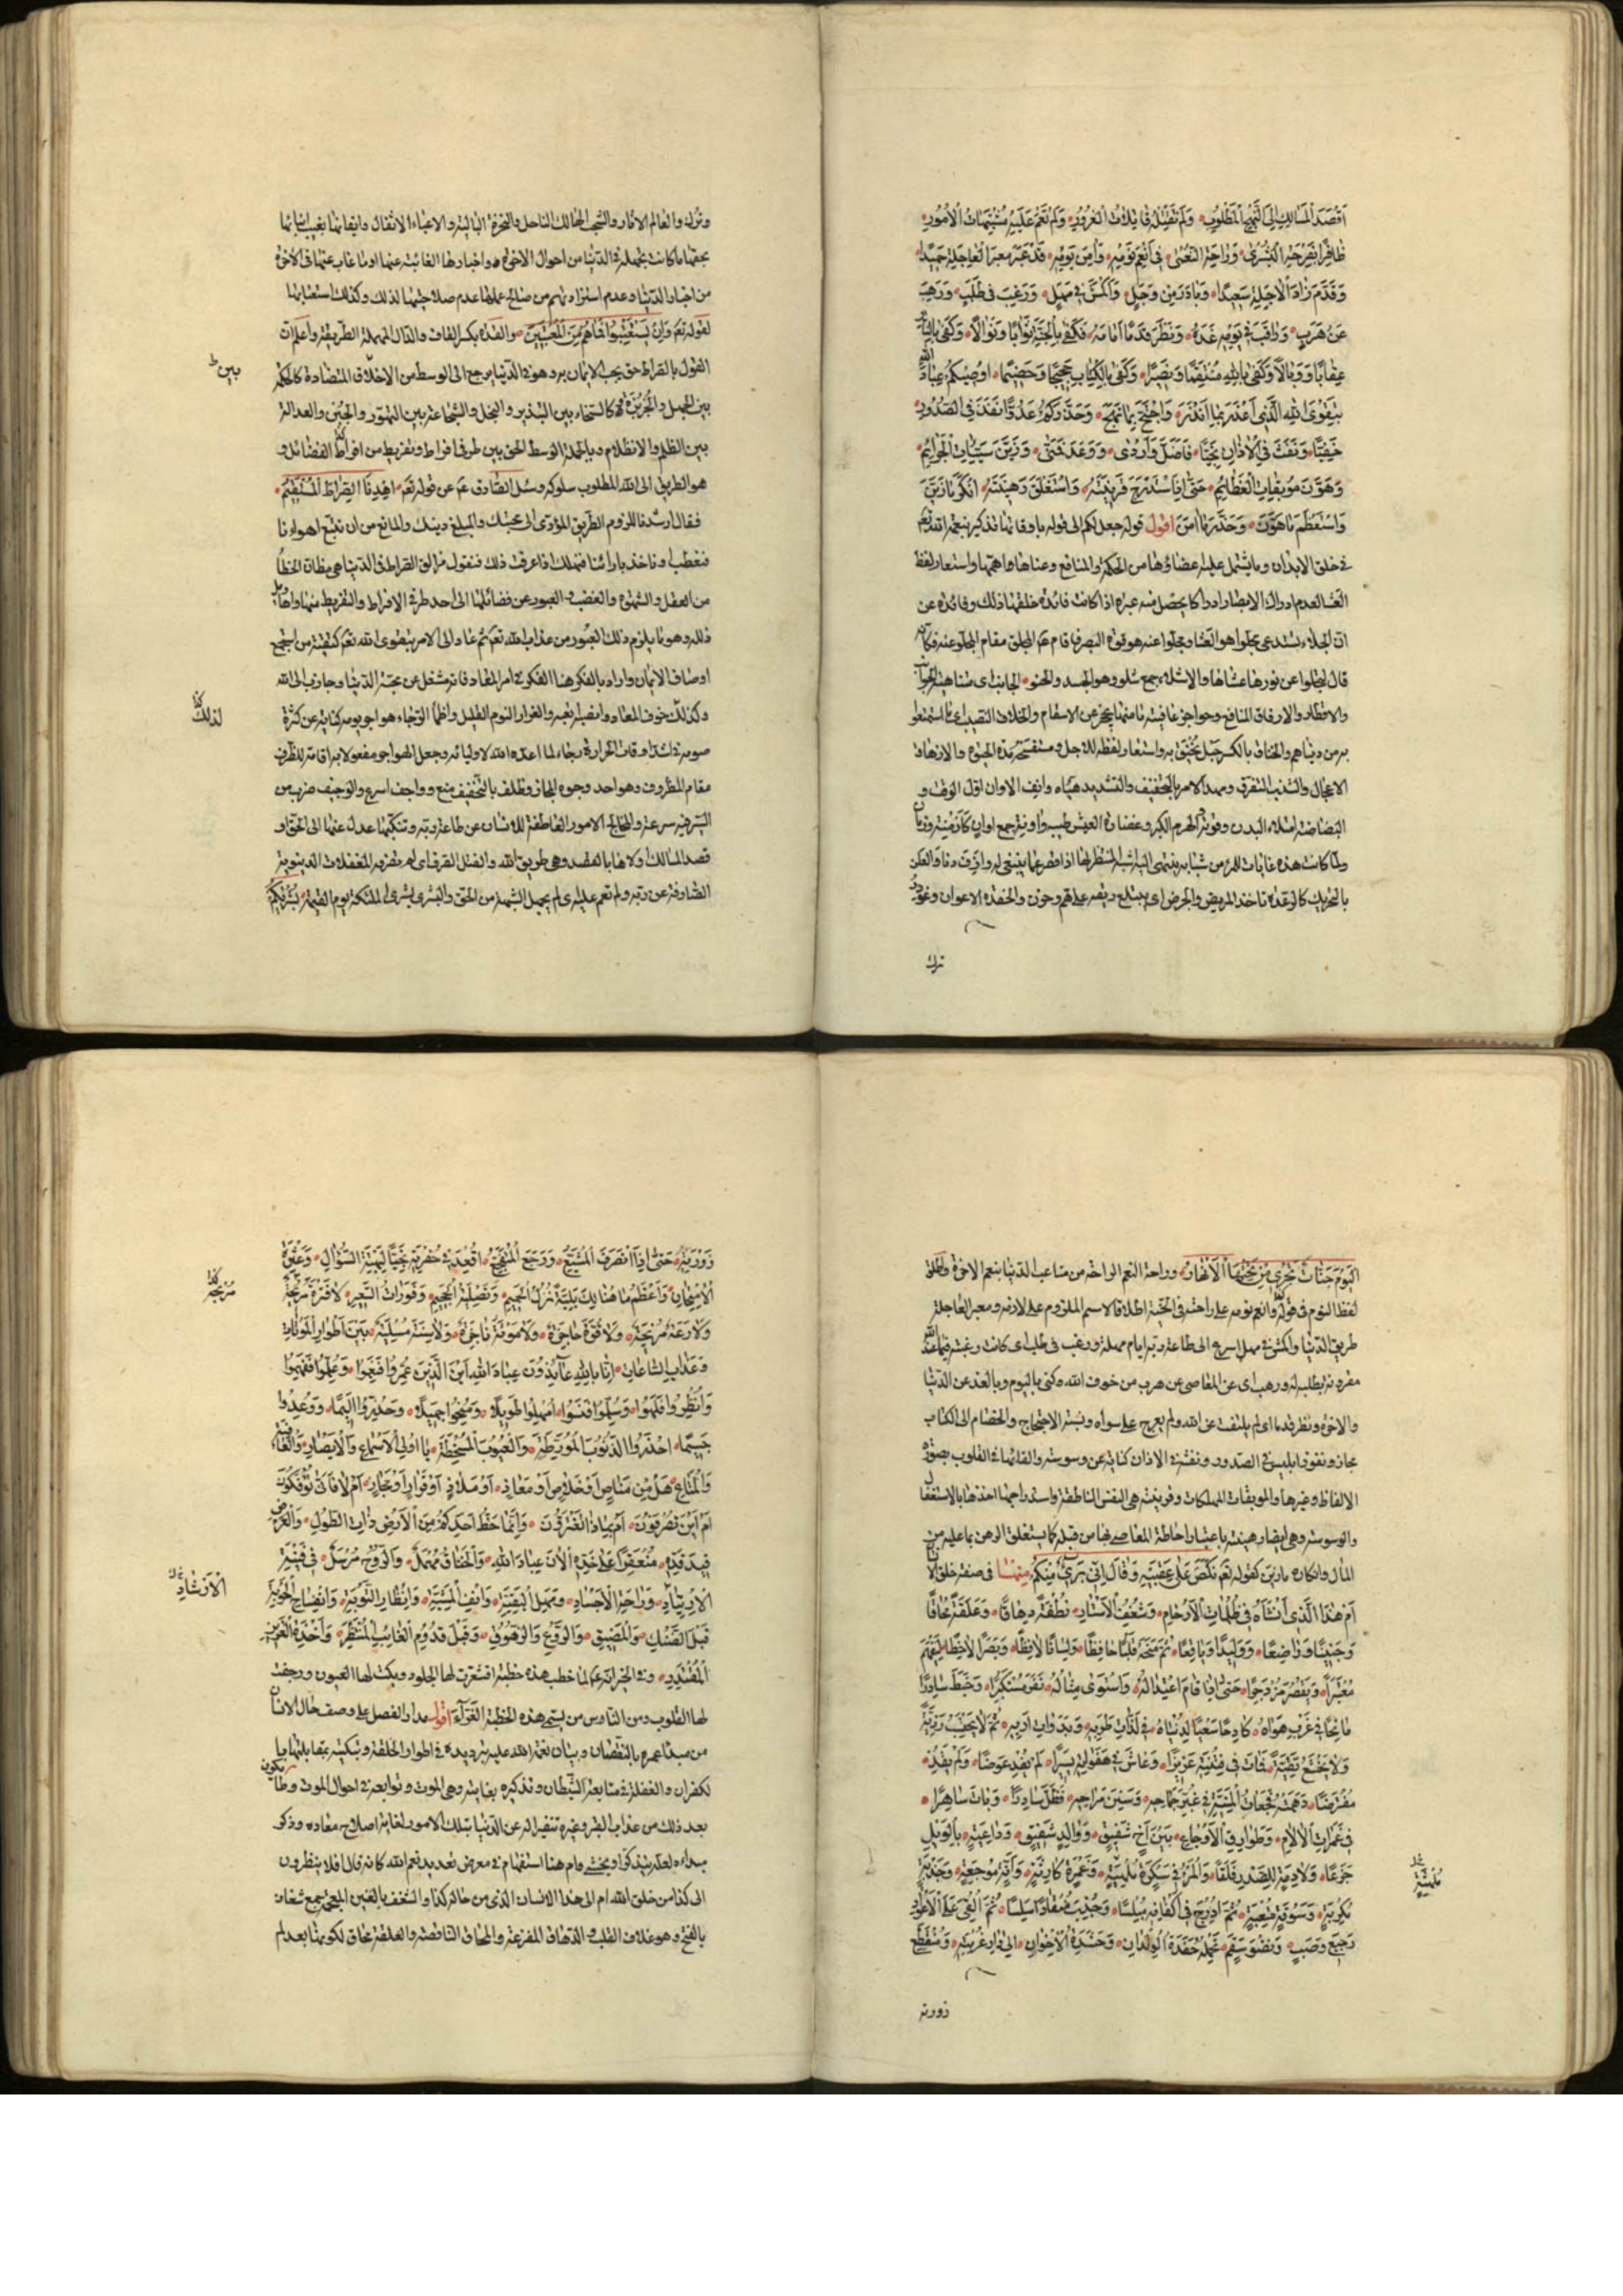 اَقْصَدَ الْمَسَالِكِ اِلَى النَّهْجِ الْمَطْلُوبِ وَلَمْ تَفْتِلْهُ فَاتِلَاتُ الْغُرُورِ وَلَمْ تَعْمَ عَلَيْهِ مُشْتَبِهَاتُ الْاُمُورِ
ظَافِرًا بِفَرْحَةِ الْبُشْرٰى وَرَاحَةِ النُّعْمٰى فِى اَنْعَمِ نَوْمِهِ وَاٰمَنِ يَوْمِهِ قَدْ عَبَرَ مَعْبَرَ الْعَاجِلَةِ حَمِيدًا
وَقَدَّمَ زَادَ الْاٰجِلَةِ سَعِيدًا وَبَادَرَ مِنْ وَجَلٍ وَاَكْمَشَ فِى مَهَلٍ وَرَغِبَ فِى طَلَبٍ وَذَهَبَ
عَنْ هَرَبٍ وَرَاقَبَ فِى يَوْمِهِ غَدَهُ وَنَظَرَ قُدُمًا اَمَامَهُ فَكَفٰى بِالْجَنَّةِ ثَوَابًا وَنَوَالًا وَكَفٰى بِالنَّارِ
عِقَابًا وَوَبَالًا وَكَفٰى بِاللهِ مُنْتَقِمًا وَنَصِيرًا وَكَفٰى بِالْكِتَابِ حَجِيجًا وَخَصِيمًا اُوصِيكُمْ عِبَادَ اللهِ
بِتَقْوَى اللهِ الَّذِى اَعْذَرَ بِمَا اَنْذَرَ وَاحْتَجَّ بِمَا نَهَجَ وَحَذَّرَكُمْ عَدُوًّا نَفَذَ فِى الصُّدُورِ
خَفِيًّا وَنَفَثَ فِى الْاٰذَانِ نَجِيًّا فَاَضَلَّ وَاَرْدٰى وَوَعَدَ فَمَنّٰى وَزَيَّنَ سَيِّئَاتِ الْجَرَائِمِ
وَهَوَّنَ مُوبِقَاتِ الْعَظَائِمِ حَتّٰى اِذَا اسْتَدْرَجَ قَرِينَتَهُ وَاسْتَغْلَقَ رَهِينَتَهُ اَنْكَرَ مَا زَيَّنَ
وَاسْتَعْظَمَ مَا هَوَّنَ وَحَذَّرَ مَا اَمَّنَ اقول قوله جعل لكم الى قوله بارفاقها تذكير بنعمة الله تعم
فى خلق الابدان وما يشتمل عليه اعضاؤها من الحكم والمنافع وعناها ما اهمّها واستعار لفظ
العشا لعدم ادراك الابصار ادراكا يحصل منه عبرة اذ كانت فائدة خلقها ذلك وفائدة عن
انّ الجلاء يستدعى مجلوا هو العشا ومجلوا عنه هو قوة البصر فاقام عم المجلو مقام المجلو عنه فكانه
قال لتجلوا عن نورها عشاها والاشلاء جمع شلو وهو الجسد والعضو
والاوطار والارفاق المنافع وحواجز عافيته ما منها يحجز عن الاسقام والخلاق النصيب اى ما استمتعوا
به من دنياهم والخناق بالكسر حبل يخنق به واستعار لفظه للاجل ومستفسحه مدة الحيوة والارهاق
الاعجال والتشذب التفرق ومهد الامر بالتخفيف والتشديد هيأه وانف الاوان اوّل الوقت و
البضاضة امتلاء البدن وقوته والهرم الكبر وغضارة العيش طيبه واونة جمع اوان كازمنة وزمان
ولما كانت هذه غايات للمرء من شبابه
بالتحريك كالرعدة تاخذ المريض والجرض ان يبتلع ريقه على هم وحزن والحفدة الاعوان وغودر
ترك
وترك والمعالم الاثار والشحب الهالك الناحل والنخرة البالية والاعباء الاثقال وايقانها بغيب انبائها
تحقّقها ما كانت تجهله فى الدنيا من احوال الاخرة واخبارها الغائبة عنها او ما غاب عنها فى الاخرة
من اخبار الدنيا وعدم استزادتهم من صالح عملها عدم صلاحيتها لذلك وكذلك استعتابها
لقوله تعم وَاِنْ يَسْتَعْتِبُوا فَمَا هُمْ مِنَ الْمُعْتَبِينَ والقدة بكسر القاف والدال المهملة الطريقة واعلم ان
القول بالصراط حق يجب الايمان به وهو فى الدنيا يرجع الى الوسط من الاخلاق المتضادة كالحكمة
بين
بين الجهل والجربزة وكالسخاء بين التبذير والبخل والشجاعة بين التهور والجبن والعدالة
بين الظلم والانظلام وبالجملة الوسط الحق بين طرفى افراط وتفريط من اطراف الفضائل و
هو الطريق الى الله المطلوب سلوكه وسئل الصادق عم عن قوله تعم اِهْدِنَا الصِّرَاطَ الْمُسْتَقِيمَ
فقال ارشدنا للزوم الطريق المؤدى الى محبتك والمبلغ دينك والمانع من ان نتبع اهواءنا
فنعطب او ناخذ بارائنا فنهلك اذا عرفت ذلك فنقول مزالق الصراط فى الدنيا هى مظان الخطأ
من العقل والشهوة والغضب والعبور عن فضائلها الى احد طرفى الافراط والتفريط منها واهاويل
ذلله وهو ما يلزم ذلك العبور من عذاب الله تعم ثم عاد الى الامر بتقوى الله تعم كتقية من استجمع
اوصاف الايمان واراد بالفكر هنا الفكر فى امر المعاد فانه مشغل عن محبة الدنيا وجاذب الى الله
لذلك
وكذلك خوف المعاد وانصب اتعبه والغرار النوم القليل واظمأ الرجاء هواجر يومه كناية عن كثرة
صومه فى اشد اوقات الحرارة رجاء لما اعده الله لاوليائه وجعل الهواجر مفعولا به اقامة للظرف
مقام المظروف وهو احد وجوه المجاز وظلف بالتخفيف منع وواجف اسرع والوجيف ضرب من
السير فيه سرعة والمخالج الامور القاطعة للانسان عن طاعة ربه وتنكبها عدل عنها الى الحق و
قصد المسالك اولاها بالقصد وهى طريق الله والفتل الصرف اى لم تصرفه المغفلات الدنيوية
الصارفة عن ربه ولم تعم عليه اى لم يجهل الشبهة من الحق والبشرى بشرى الملئكة يوم القيمة بُشْرٰيكُمُ
الْيَوْمَ جَنَّاتٌ تَجْرِى مِنْ تَحْتِهَا الْاَنْهَارُ وراحة النعم الراحة من متاعب الدنيا بنعم الاخرة واطلق
لفظ النوم فى قوله وانعم نومه على راحته فى الجنة اطلاقا لاسم الملزوم على لازمه ومعبر العاجلة
طريق الدنيا واكمش فى مهل اسرع الى طاعة ربه ايام مهلة ورغب فى طلب اى كانت رغبته فيما عند الله
مقرونة بطلبه له ورهب اى عن المعاصى عن هرب من خوف الله وكنى باليوم وبالغد عن الدنيا
والاخرة ونظر قدما اى لم يلتفت عن الله ولم يعرج على سواه ونسبة الاحتجاج والخصام الى الكتاب
مجاز ونفوذ ابليس فى الصدور ونفثه فى الاذان كناية عن وسوسته والقائها فى القلوب بصورة
الالفاظ وغيرها والموبقات المهلكات وقرينته هى النفس الناطقة واستدراجها اخذها بالاستغفال
والوسوسة وهى ايضا رهينة باعتبار احاطة المعاصى بها من قبله كما يستغلق الرهن بما عليه من
المال وانكاره ما زين كقوله تعم نَكَصَ عَلٰى عَقِبَيْهِ وَقَالَ اِنِّى بَرِىءٌ مِنْكُمْ منها فى صفة خلق الانسان
اَمْ هٰذَا الَّذِى اَنْشَاَهُ فِى ظُلُمَاتِ الْاَرْحَامِ وَشُغُفِ الْاَسْتَارِ نُطْفَةً دِهَاقًا وَعَلَقَةً مُحَاقًا
وَجَنِينًا وَرَاضِعًا وَوَلِيدًا وَيَافِعًا ثُمَّ مَنَحَهُ قَلْبًا حَافِظًا وَلِسَانًا لَافِظًا وَبَصَرًا لَاحِظًا لِيَفْهَمَ
مُعْتَبِرًا وَيُقَصِّرَ مُزْدَجِرًا حَتّٰى اِذَا قَامَ اعْتِدَالُهُ وَاسْتَوٰى مِثَالُهُ نَفَرَ مُسْتَكْبِرًا وَخَبَطَ سَادِرًا
مَاتِحًا فِى غَرْبِ هَوَاهُ كَادِحًا سَعْيًا لِدُنْيَاهُ فِى لَذَّاتِ طَرَبِهِ وَبَدَوَاتِ اَرَبِهِ ثُمَّ لَا يَحْتَسِبُ رَزِيَّةً
وَلَا يَخْشَعُ تَقِيَّةً فَمَاتَ فِى فِتْنَتِهِ غَرِيرًا وَعَاشَ فِى هَفْوَتِهِ يَسِيرًا لَمْ يُفِدْ عِوَضًا وَلَمْ يَقْضِ
مُفْتَرَضًا دَهَمَتْهُ فَجَعَاتُ الْمَنِيَّةِ فِى غُبَّرِ جِمَاحِهِ وَسَنَنِ مِرَاحِهِ فَظَلَّ سَادِرًا وَبَاتَ سَاهِرًا
فِى غَمَرَاتِ الْاٰلَامِ وَطَوَارِقِ الْاَوْجَاعِ بَيْنَ اَخٍ شَقِيقٍ وَوَالِدٍ شَفِيقٍ وَدَاعِيَةٍ بِالْوَيْلِ
جَزَعًا وَلَادِمَةٍ لِلصَّدْرِ قَلَقًا وَالْمَرْءُ فِى سَكْرَةٍ مُلْهِيَةٍ وَغَمْرَةٍ كَارِثَةٍ وَاَنَّةٍ مُوجِعَةٍ وَجَذْبَةٍ
مُكْرِبَةٍ وَسَوْقَةٍ مُتْعِبَةٍ ثُمَّ اُدْرِجَ فِى اَكْفَانِهِ مُبْلِسًا وَجُذِبَ مُنْقَادًا سَلِسًا ثُمَّ اُلْقِىَ عَلَى الْاَعْوَادِ
رَجِيعَ وَصَبٍ وَنِضْوَ سَقَمٍ تَحْمِلُهُ حَفَدَةُ الْوِلْدَانِ وَحَشَدَةُ الْاِخْوَانِ اِلٰى دَارِ غُرْبَتِهِ وَمُنْقَطَعِ
زورته
زَوْرَتِهِ حَتّٰى اِذَا انْصَرَفَ الْمُشَيِّعُ وَرَجَعَ الْمُتَفَجِّعُ اُقْعِدَ فِى حُفْرَتِهِ نَجِيًّا لِبَهْتَةِ السُّؤَالِ وَعَثْرَةِ
الْاِمْتِحَانِ وَاَعْظَمُ مَا هُنَالِكَ بَلِيَّةً نُزُلُ الْحَمِيمِ وَتَصْلِيَةُ الْجَحِيمِ وَفَوْرَاتُ السَّعِيرِ لَا فَتْرَةٌ مُرِيحَةٌ
وَلَا دَعَةٌ مُزِيحَةٌ وَلَا قُوَّةٌ حَاجِزَةٌ وَلَا مَوْتَةٌ نَاجِزَةٌ وَلَا سِنَةٌ مُسْلِيَةٌ بَيْنَ اَطْوَارِ الْمَوْتَاتِ
وَعَذَابِ السَّاعَاتِ اِنَّا بِاللهِ عَائِذُونَ عِبَادَ اللهِ اَيْنَ الَّذِينَ عُمِّرُوا فَنَعِمُوا وَعُلِّمُوا فَفَهِمُوا
وَاُنْظِرُوا فَلَهَوْا وَسُلِّمُوا فَنَسُوا اُمْهِلُوا طَوِيلًا وَمُنِحُوا جَمِيلًا وَحُذِّرُوا اَلِيمًا وَوُعِدُوا
جَسِيمًا اِحْذَرُوا الذُّنُوبَ الْمُوَرِّطَةَ وَالْعُيُوبَ الْمُسْخِطَةَ يَا اُولِى الْاَسْمَاعِ وَالْاَبْصَارِ وَالْعَافِيَةِ
وَالْمَتَاعِ هَلْ مِنْ مَنَاصٍ اَوْ خَلَاصٍ اَوْ مَعَاذٍ اَوْ مَلَاذٍ اَوْ فِرَارٍ اَوْ مَحَارٍ اَمْ لَا فَاَنّٰى تُؤْفَكُونَ
اَمْ اَيْنَ تُصْرَفُونَ اَمْ بِمَاذَا تَغْتَرُّونَ وَاِنَّمَا حَظُّ اَحَدِكُمْ مِنَ الْاَرْضِ ذَاتِ الطُّولِ وَالْعَرْضِ
قِيدُ قَدِّهِ مُنْعَفِرًا عَلٰى خَدِّهِ اَلْاٰنَ عِبَادَ اللهِ وَالْخِنَاقُ مُهْمَلٌ وَالرُّوحُ مُرْسَلٌ فِى فَيْنَةِ
الْاِرْتِيَادِ وَرَاحَةِ الْاَجْسَادِ وَمَهَلِ الْبَقِيَّةِ وَاُنُفِ الْمَشِيَّةِ وَاِنْظَارِ التَّوْبَةِ وَانْفِسَاحِ الْحَوْبَةِ
الْاِرْشَادِ
قَبْلَ الضَّنْكِ وَالْمَضِيقِ وَالرَّوْعِ وَالزُّهُوقِ وَقَبْلَ قُدُومِ الْغَائِبِ الْمُنْتَظَرِ وَاَخْذَةِ الْعَزِيزِ
الْمُقْتَدِرِ وفى الخبر انه عم لما خطب هذه خطبة اقشعرت لها الجلود وبكت لها العيون ورجفت
لها القلوب ومن الناس من يسمى هذه الخطبة الغراء اقول مدار الفصل على وصف حال الانسان
من مبدأ عمره بالنقصان وبيان نعمة الله عليه بترديده فى اطوار الخلقة وتبكيته بمقابلتها با
لكفران والغفلة فى متابعة الشيطان وتذكيره بغايته وهى الموت وتوابعه فى احوال الموت وما يكون
بعد ذلك من عذاب القبر وغيره تنفيرا له عن الدنيا بتلك الامور لغاية اصلاح معاده وذكر
مبداءه لعله يتذكر او يخشى وام هنا استفهام فى معرض تعديد نعم الله كانه قال افلا ينظرون
الى كذا من خلق الله ام الى هذا الانسان الذى من حاله كذا والشغف بالغين المعجمة جمع شغاف
بالفتح وهو غلاف القلب والدهاق المفرغة والمحاق الناقصة والعلقة محاق لكونها بعد لم